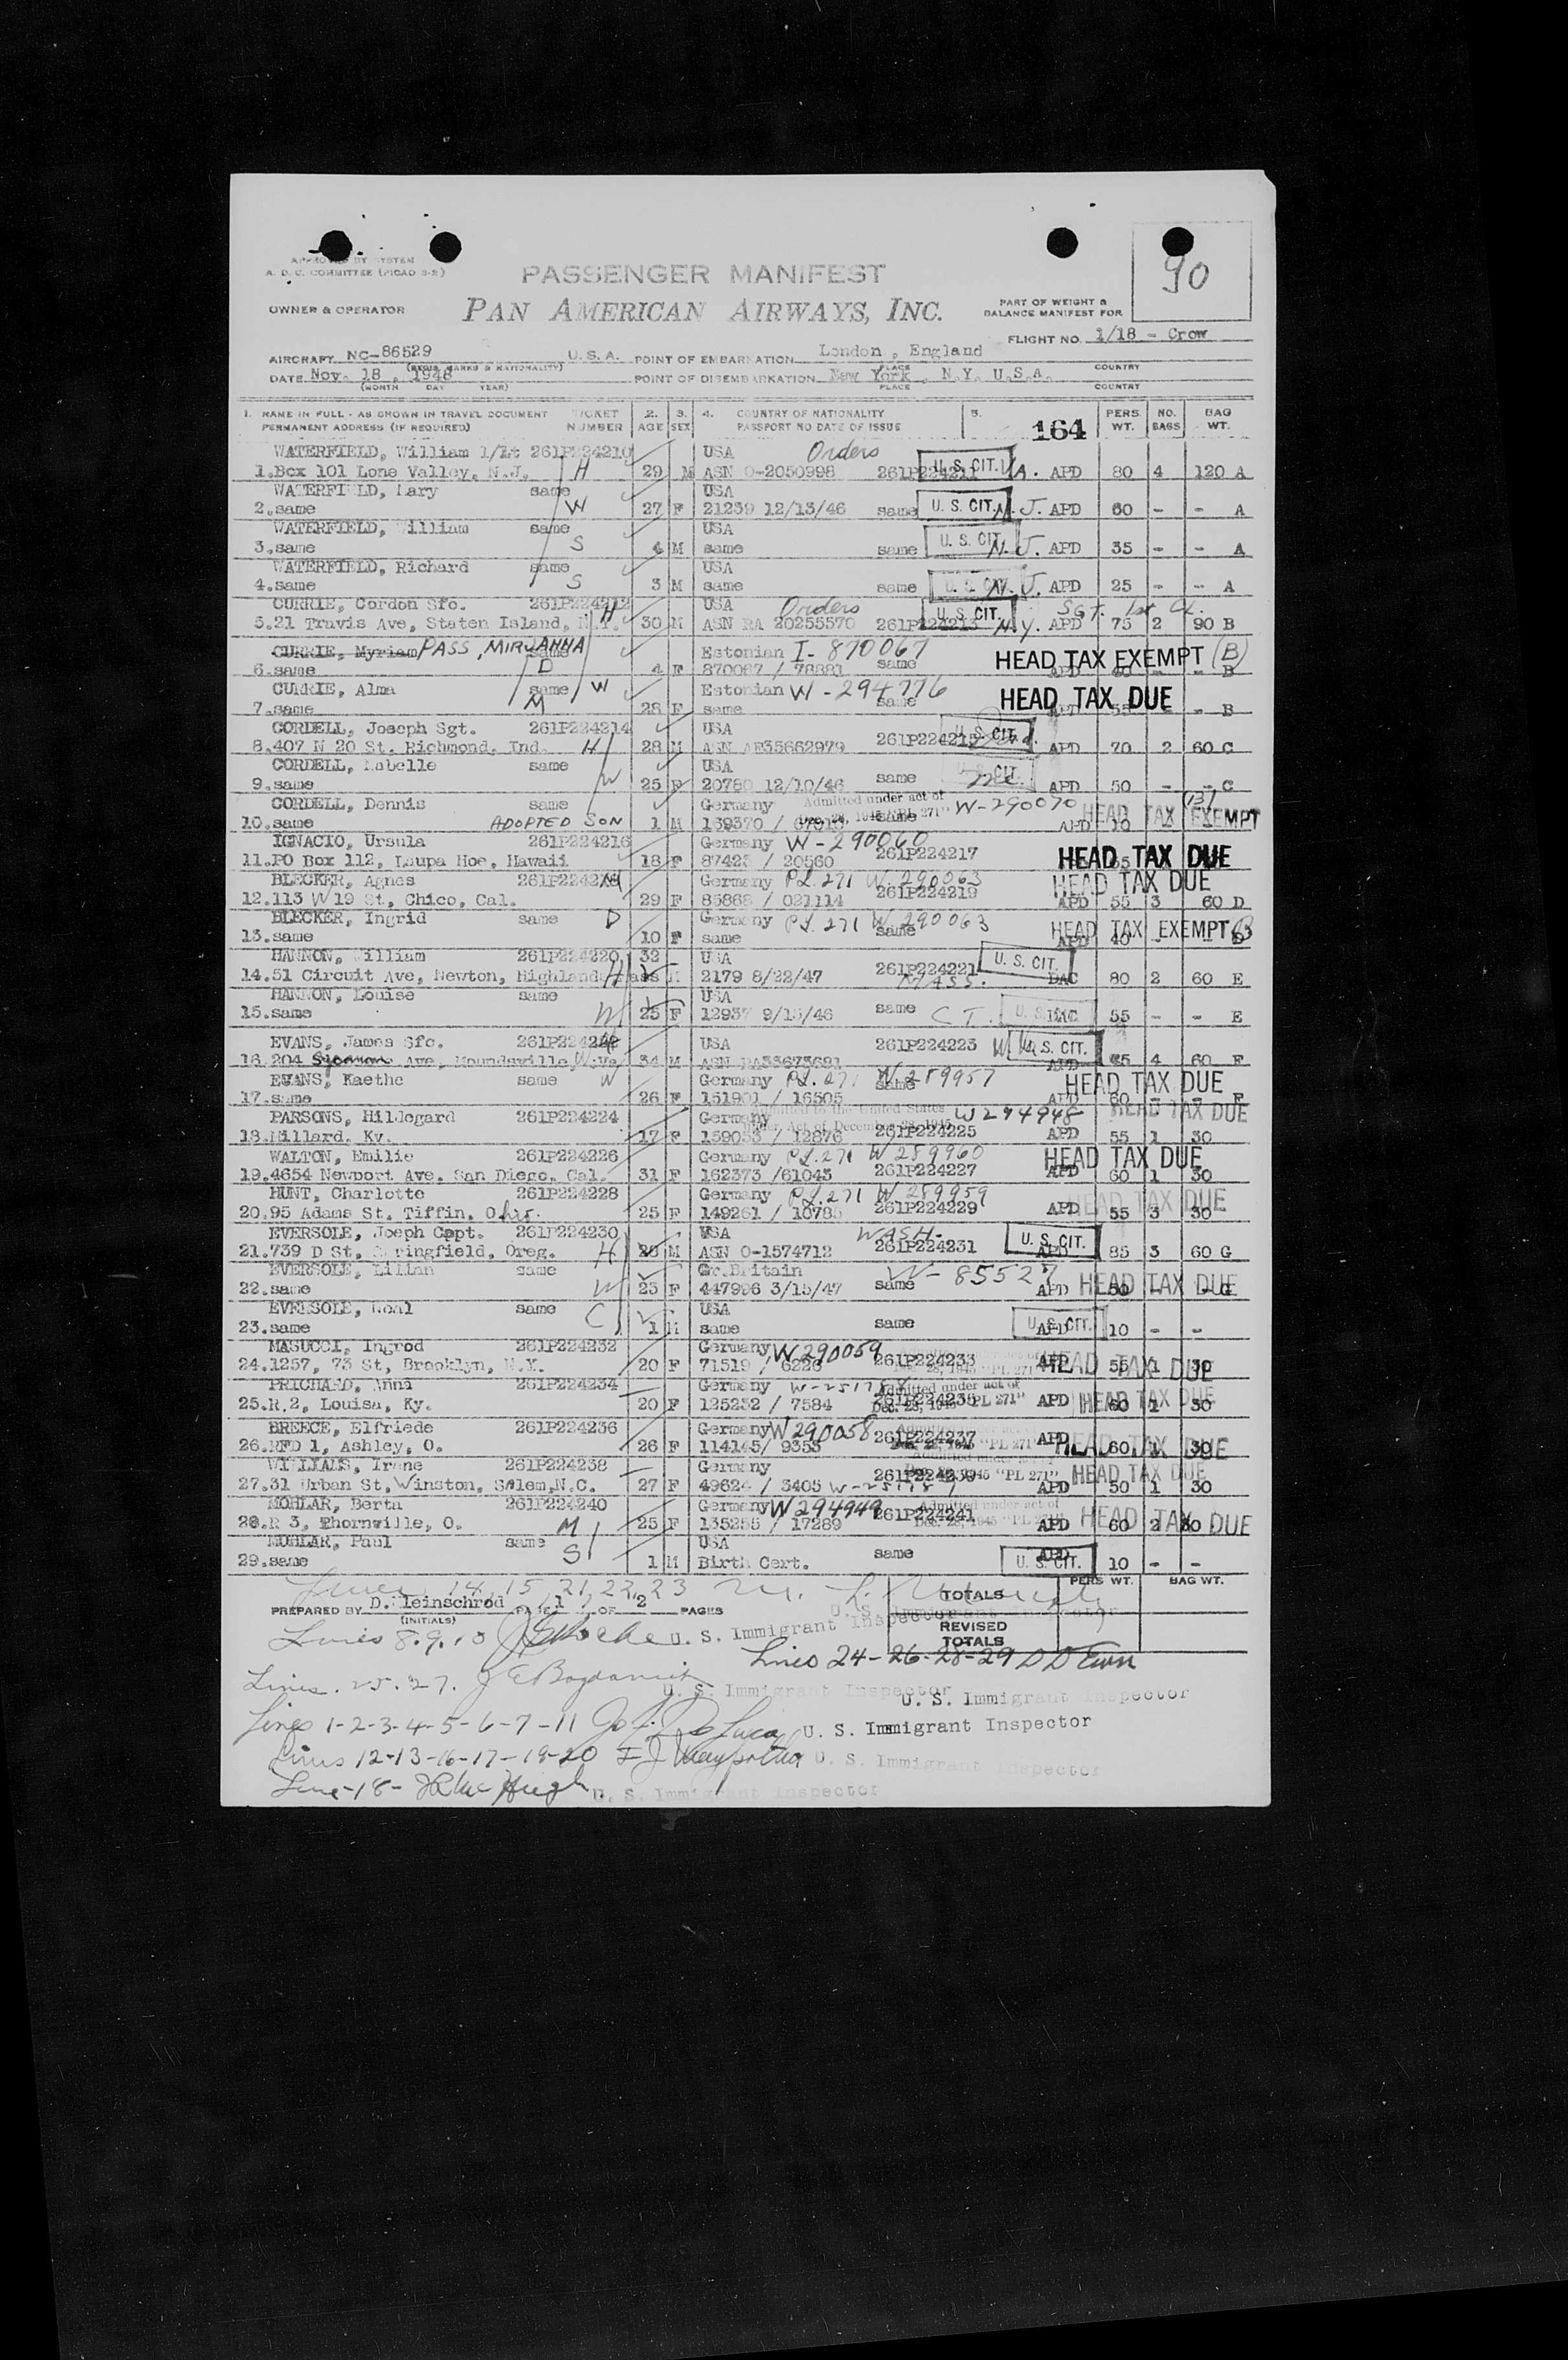 APPROVED BY SYSTEM
A. D. C. COMMITTEE (PICAO 3-2)
90
PASSENGER MANIFEST
OWNER & OPERATOR PAN AMERICAN AIRWAYS, INC.
PART OF WEIGHT &
BALANCE MANIFEST FOR
FLIGHT NO. 1/18 - Crow
AIRCRAFT NC-86529 U. S. A. POINT OF EMBARKATION London , England
DATE Nov. 18 , 1948 POINT OF DISEMBARKATION New York , N.Y. U.S.A.
(MONTH DAY YEAR) PLACE COUNTRY
1. NAME IN FULL - AS SHOWN IN TRAVEL DOCUMENT TICKET 2. 3. 4. COUNTRY OF NATIONALITY 5. PERS. NO. BAG
PERMANENT ADDRESS (IF REQUIRED) NUMBER AGE SEX PASSPORT NO DATE OF ISSUE 164 WT. BAGS WT.
WATERFIELD, William 1/Lt 261P224210 USA Orders
1.Box 101 Lone Valley, N.J. H 29 M ASN O-2050998 261P224211 U. S. CIT. APD 80 4 120 A
WATERFIELD, Mary same USA
2.same W 27 F 21239 12/13/46 same U. S. CIT. N. J. APD 60 - - A
WATERFIELD, William same USA
3.same S 4 M same same U. S. CIT. N. J. APD 35 - - A
WATERFIELD, Richard same USA
4.same S 3 M same same U. S. CIT. N. J. APD 25 - - A
CURRIE, Gordon Sfc. 261P224212 H USA Orders U. S. CIT. SGT. 1st CL.
5.21 Travis Ave, Staten Island, N.Y. 30 M ASN RA 20255570 261P224213 N.Y. APD 75 2 90 B
CURRIE, Myriam PASS, MIRJANNA same Estonian I-870067
6.same D 4 F 870067 / 78881 same HEAD TAX EXEMPT (B) APD 40 - - B
CURRIE, Alma same W Estonian W-294776
7.same M 28 F same same HEAD TAX DUE APD 55 - - B
CORDELL, Joseph Sgt. 261P224214 USA
8.407 N 20 St. Richmond, Ind. H 28 M ASN AF35662979 261P224215 U. S. CIT. APD 70 2 60 C
CORDELL, Mabelle same USA
9.same W 25 F 20780 12/10/46 same U. S. CIT. APD 50 - - C
CORDELL, Dennis same Germany Admitted under act of W-290070
10.same ADOPTED SON 1 M Dec. 28, 1945 "PL 271" same APD 10 HEAD TAX EXEMPT
IGNACIO, Ursula 261P224216 Germany W-290060
11.PO Box 112, Laupa Hoe, Hawaii 18 F 87423 / 20560 261P224217 HEAD TAX DUE
BLECKER, Agnes Germany P.L. 271 W.290063 HEAD TAX DUE
12.113 W 19 St, Chico, Cal. 29 F 85868 / 021114 261P224219 APD 55 3 60 D
BLECKER, Ingrid same D Germany P.L. 271 W.290063
13.same 10 F same same HEAD TAX EXEMPT APD 40 - - D
HANNON, William 261P224220 32 USA
14.51 Circuit Ave, Newton, Highland, Mass H M 2179 8/22/47 261P224221 MASS. U. S. CIT. DAC 80 2 60 E
HANNON, Louise same USA
15.same W 25 F 12937 9/13/46 same CT. U. S. CIT. DAC 55 - - E
EVANS, James Sfc. USA 261P224223 W.Va U. S. CIT.
16.204 Ave, Moundsville, W.Va. 34 M ASN RA33673691 4 60 F
EVANS, Kaethe same W Germany P.L. 271 W 289957 HEAD TAX DUE
17.same 26 F 151901 / 16505 same APD 60 - - F
PARSONS, Hildegard 261P224224 Germany Admitted to the United States W294948 HEAD TAX DUE
18.Millard, Ky. 17 F 159053 / 12876 under Act of December 28, 1945 261P224225 APD 55 1 30
WALTON, Emilie 261P224226 Germany P.L. 271 W 289960 HEAD TAX DUE
19.4654 Newport Ave, San Diego, Cal. 31 F 162373 /61043 261P224227 APD 60 1 30
HUNT, Charlotte 261P224228 Germany P.L. 271 W 289959 HEAD TAX DUE
20.95 Adams St, Tiffin, Ohio. 25 F 149261 / 10785 261P224229 APD 55 3 30
EVERSOLE, Joeph Capt. 261P224230 USA WASH.
21.739 D St, Springfield, Oreg. H 28 M ASN O-1574712 261P224231 U. S. CIT. APD 85 3 60 G
EVERSOLE, Lilian same Gr.Britain W-85527
22.same W 23 F 447996 3/15/47 same APD 50 HEAD TAX DUE G
EVERSOLE, same C USA
23.same 1 M same same U. S. CIT. APD 10 - -
MASUCCI, Ingrod 261P224232 Germany W290059
24.1257, 73 St, Brooklyn, N.Y. 20 F 71519 / 6226 261P224233 APD HEAD TAX DUE 55 1 30
PRICHARD, Anna 261P224234 Germany Admitted under act of
25.R.2, Louisa, Ky. 20 F 125232 / 7584 261P224235 Dec. 28, 1945 "PL 271" APD HEAD TAX DUE 60 1 30
BREECE, Elfriede 261P224236 Germany W290058
26.RFD 1, Ashley, O. 26 F 114145/ 9353 261P224237 APD HEAD TAX DUE 60 1 30
WILLIAMS, Irene 261P224238 Germany HEAD TAX DUE
27.31 Urban St, Winston, Salem,N.C. 27 F 49624 / 3405 261P224239 APD 50 1 30
MOHLAR, Berta 261P224240 Germany W294949 Admitted under act of
28.R 3, Thornville, O. M 25 F 135255 / 17289 261P224241 Dec. 28, 1945 "PL 271" APD HEAD TAX DUE 60 2 30
MOHLAR, Paul same USA
29.same S 1 M Birth Cert. same U. S. CIT. APD 10 - -
Lines 14, 15, 21, 22, 23
TOTALS PERS WT. BAG WT.
PREPARED BY D. Teinschrod PAGE 1 OF 2 PAGES U. S. Immigrant Inspector
(INITIALS)
REVISED
TOTALS
Lines 8.9.10 U. S. Immigrant Inspector
Lines 24-26-28-29
Lines. 25.27. U. S. Immigrant Inspector
U. S. Immigrant Inspector
Lines 1-2-3-4-5-6-7-11 U. S. Immigrant Inspector
Lines 12-13-16-17-19-20 U. S. Immigrant Inspector
Line-18- U. S. Immigrant Inspector